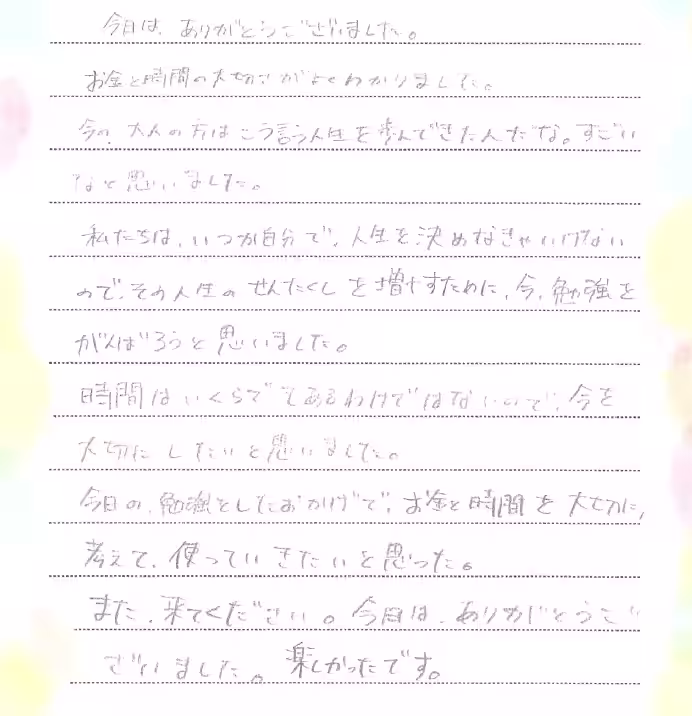 今日は、ありがとうございました。
お金と時間の大切さがよくわかりました。
今の、大人の方はこう言う人生を歩んできた人だな。すごい
なと思いました。
私たちは、いつか自分で、人生を決めなきゃいけない
ので、その人生のせんたくしを増やすために、今、勉強を
がんばろうと思いました。
時間はいくらでもあるわけではないので、今を
大切にしたいと思いました。
今日の、勉強をしたおかげで、お金と時間を大切に、
考えて、使っていきたいと思った。
また、来てください。今日は、ありがとうご
ざいました。楽しかったです。